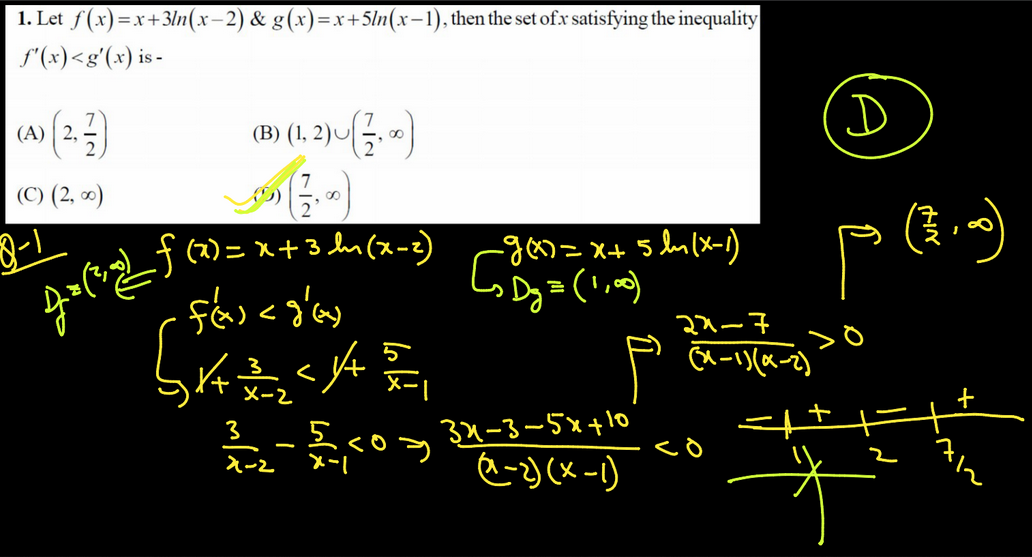 1. Let f(x)=x+3ln(x−2) & g(x)=x+5ln(x−1), then the set of x satisfying the inequality
f'(x)<g'(x) is -
(A) (2, 7/2)
(B) (1, 2)∪(7/2, ∞)
(C) (2, ∞)
(D) (7/2, ∞)
D
Q-1
f(x) = x+3 ln(x-2)
g(x) = x+ 5 ln(x-1)
(7/2, ∞)
Df ≡ (2, ∞)
Dg ≡ (1, ∞)
f'(x) < g'(x)
1 + 3/(x-2) < 1 + 5/(x-1)
(2x-7)/((x-1)(x-2)) > 0
3/(x-2) - 5/(x-1) < 0 ⇒ (3x-3-5x+10)/((x-2)(x-1)) < 0
− + − +
1 2 7/2